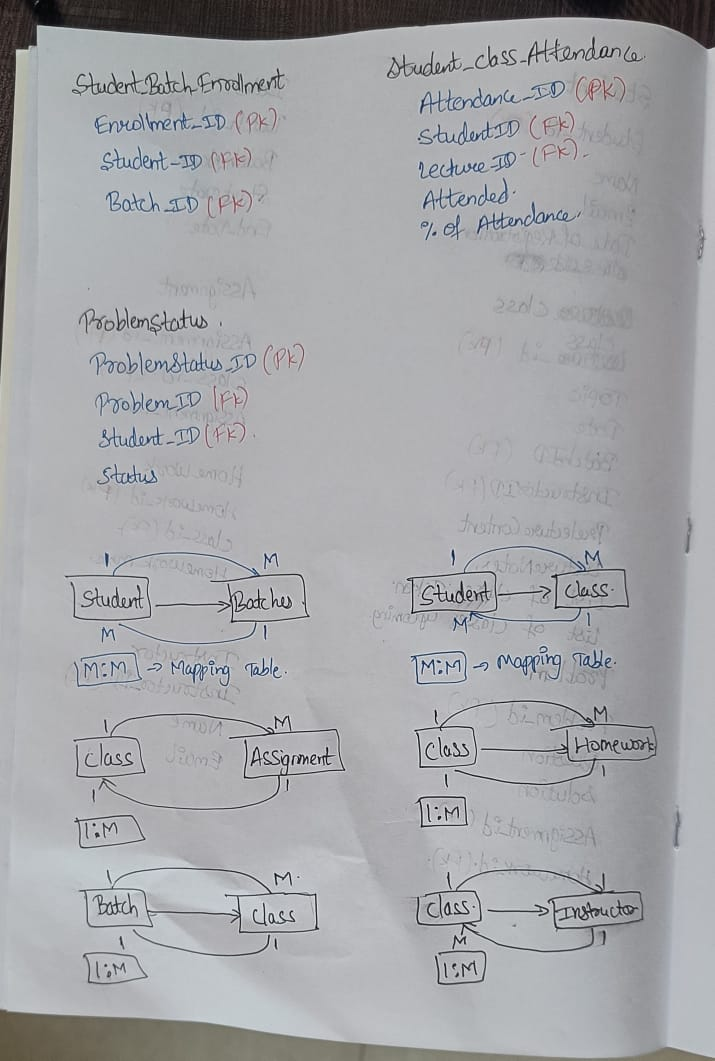 Student_Batch_Enrollment
Enrollment_ID (PK)
Student-ID (FK)
Batch_ID (FK)
Student_Class_Attendance.
Attendance_ID (PK)
StudentID (FK)
Lecture ID- (FK).
Attended.
% of Attendance.
ProblemStatus.
ProblemStatus_ID (PK)
Problem_ID (FK)
Student_ID (FK).
Status
1 M
Student Batches
M 1
M:M → Mapping Table.
1 M
Student Class.
M 1
M:M → Mapping Table.
1 M
Class Assignment
1 1
1:M
1 M
Class Homework
1 1
1:M
1 M.
Batch Class
1 1
1:M
1 1
Class. Instructor
M 1
1:M